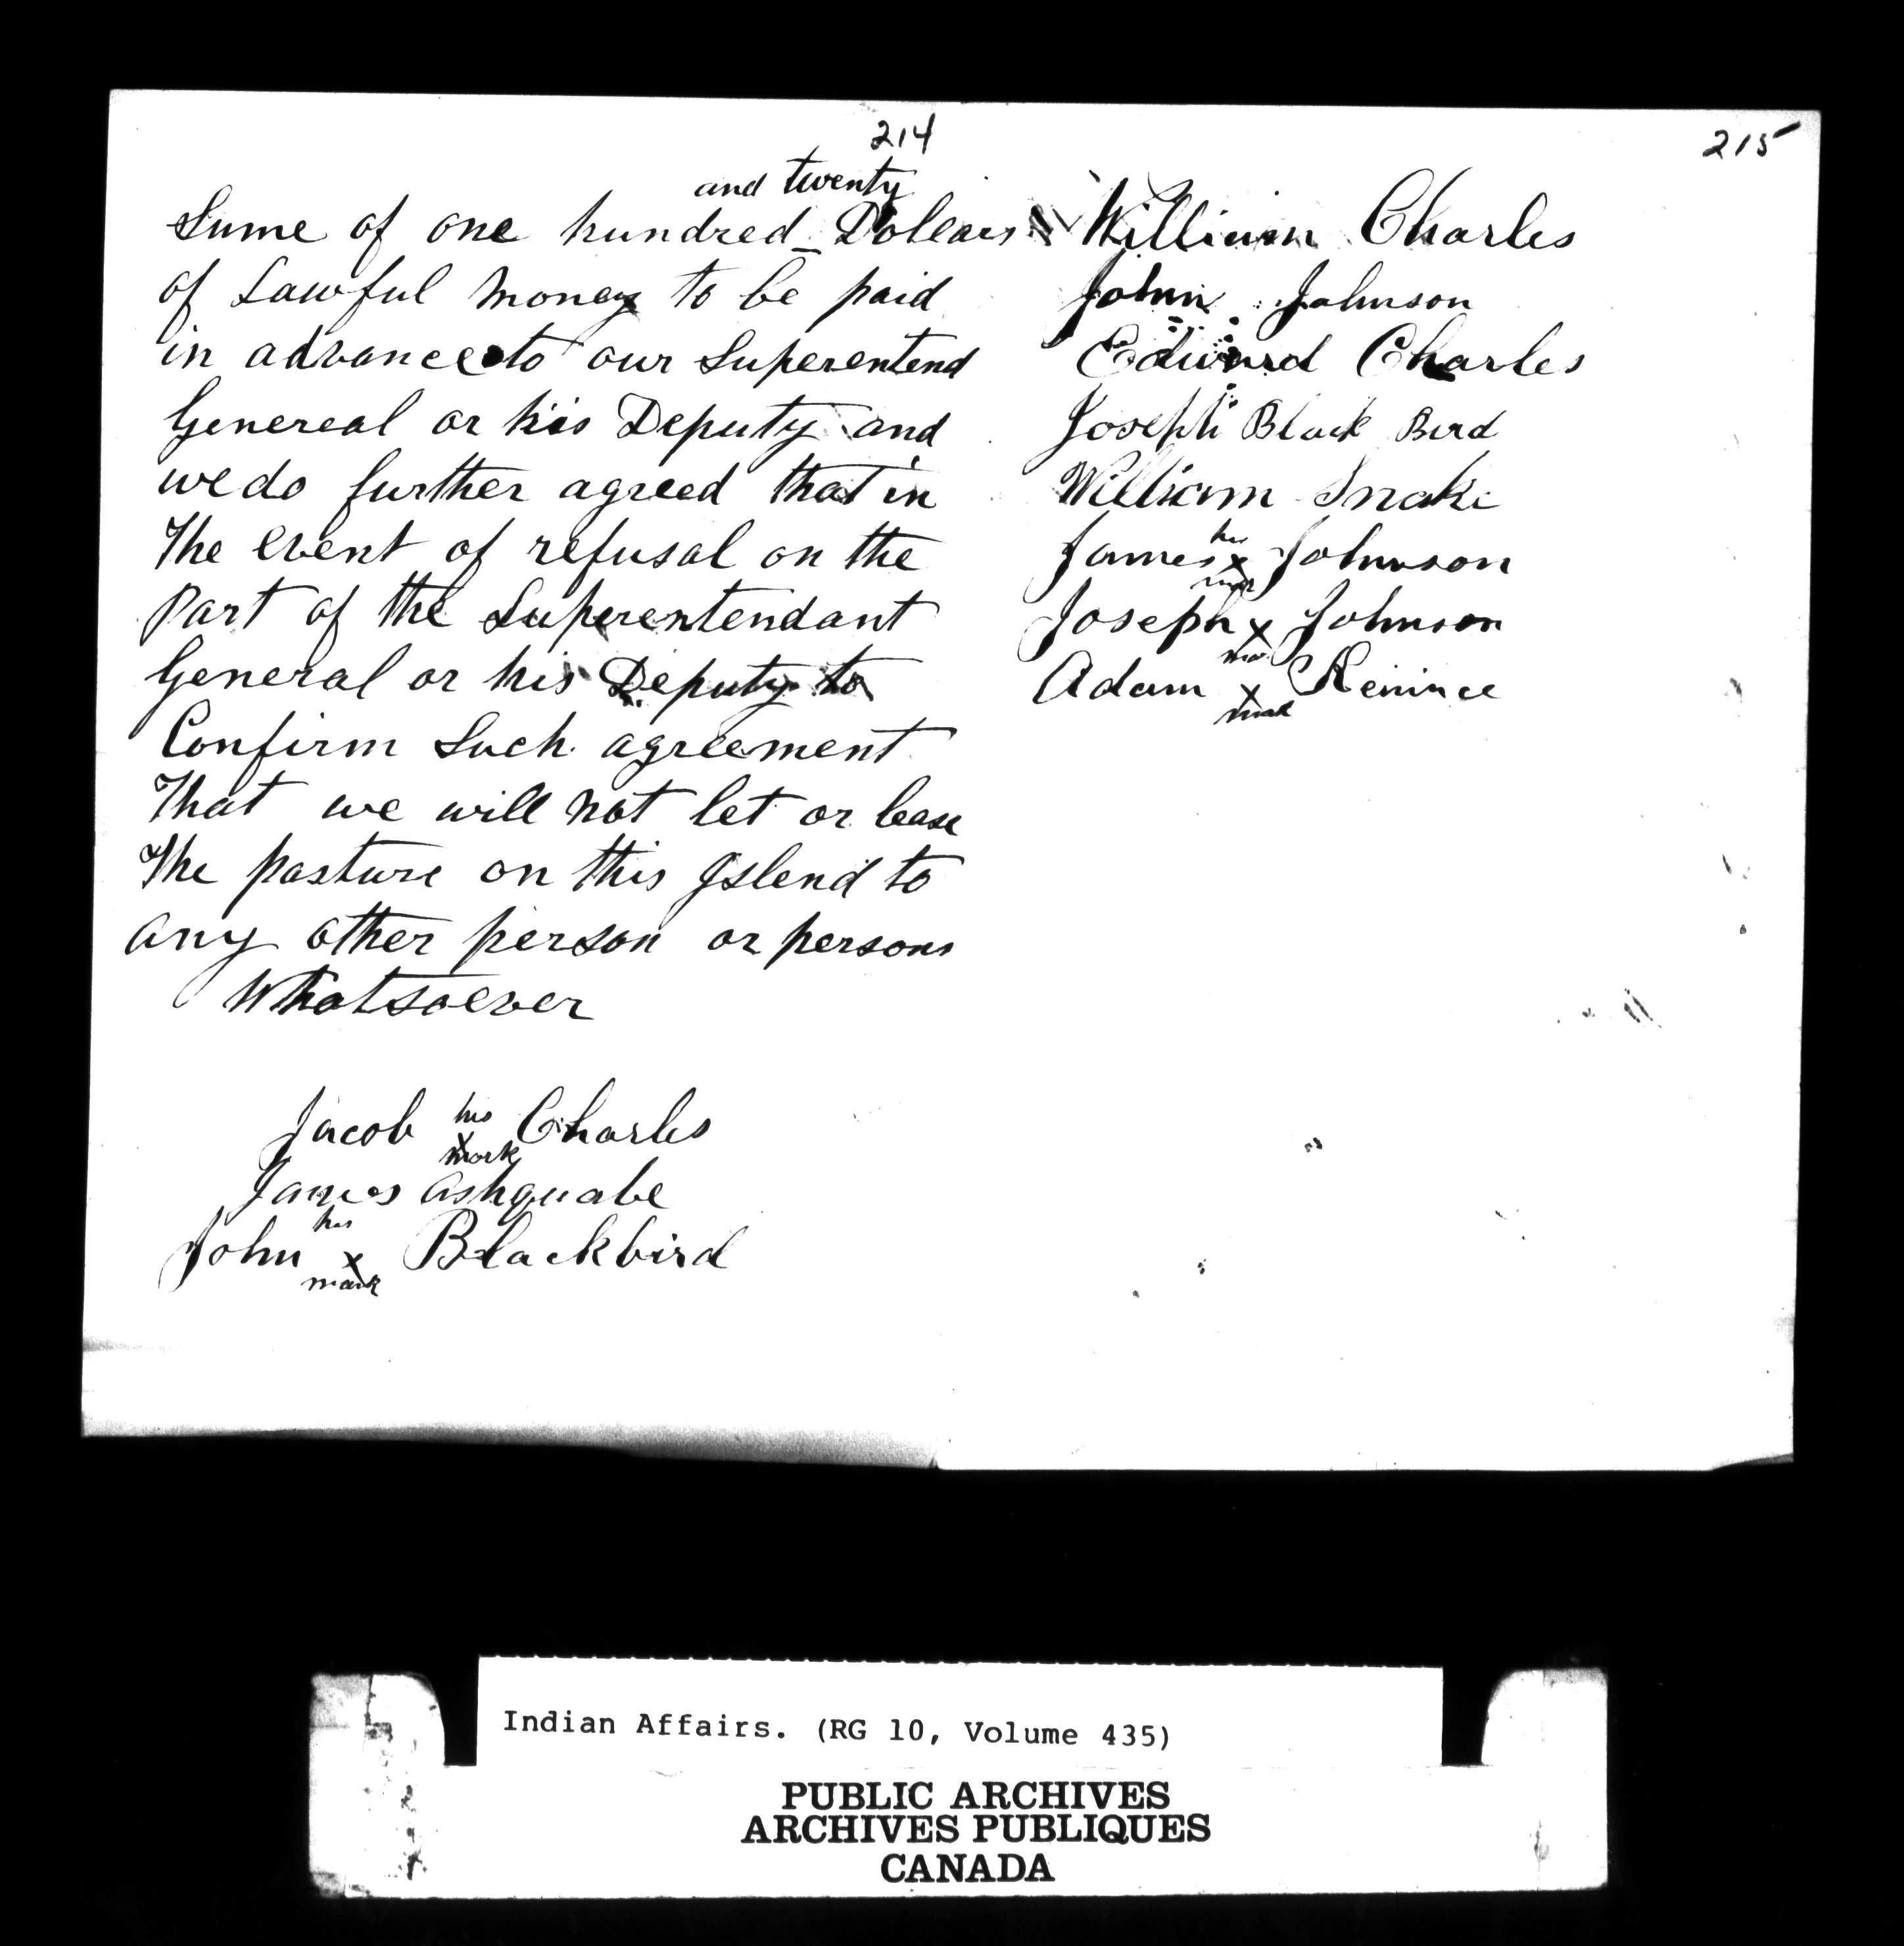 214
and twenty
Sume of one hundred Dollars
of Lawful Money to be paid
in advance to our Superentend
Genereal or his Deputy and
we do further agreed that in
The event of refusal on the
Part of the Superentendant
General or his Deputy to
Confirm Such agreement
That we will not let or lease
The pasture on this Islend to
any other person or persons
Whatsoever
his
Jacob x Charles
mark
James Ashquabe
his
John x Blackbird
mark
215
William Charles
John Johnson
Edward Charles
Joseph Black Bird
William Snake
his
James x Johnson
mark
Joseph x Johnson
Adam x
mark
Indian Affairs. (RG 10, Volume 435)
PUBLIC ARCHIVES
ARCHIVES PUBLIQUES
CANADA